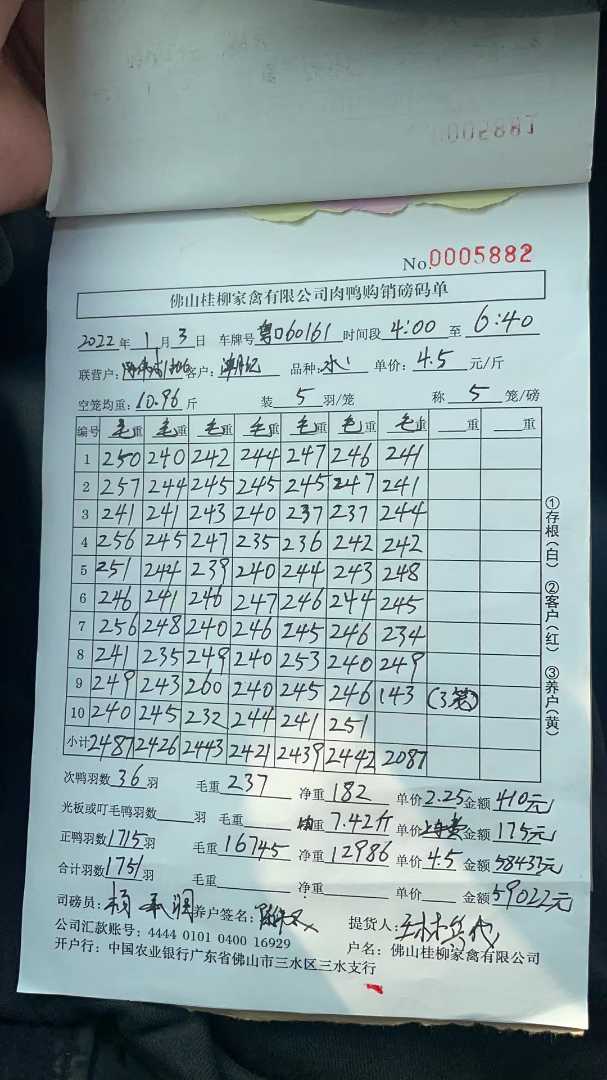 No.0005882
佛山桂柳家禽有限公司肉鸭购销磅码单
2022年1月3日 车牌号粤Q60161 时间段4:00至6:40
联营户: 客户: 品种:水 单价:4.5元/斤
空笼均重:10.96斤 装5羽/笼 称5笼/磅
编号 毛重 毛重 毛重 毛重 毛重 毛重 毛重 重 重
1 250 240 242 244 247 246 241
2 257 244 245 245 245 247 241
3 241 241 243 240 237 237 244
4 256 245 247 235 236 242 242
5 251 244 239 240 244 243 248
6 246 241 246 247 246 244 245
7 256 248 240 246 245 246 234
8 241 235 249 240 253 240 249
9 249 243 260 240 245 246 143 (3笼)
10 240 245 232 244 241 251
小计 2487 2426 2443 2421 2439 2442 2087
①存根(白) ②客户(红) ③养户(黄)
次鸭羽数36羽 毛重237 净重182 单价2.25金额410元
光板或叮毛鸭羽数 羽 毛重 均重7.42斤 单价上车费金额175元
正鸭羽数1715羽 毛重16745 净重12986 单价4.5金额58437元
合计羽数1751羽 毛重 净重 单价 金额59022元
司磅员: 养户签名: 提货人:
公司汇款账号:4444 0101 0400 16929 户名:佛山桂柳家禽有限公司
开户行:中国农业银行广东省佛山市三水区三水支行